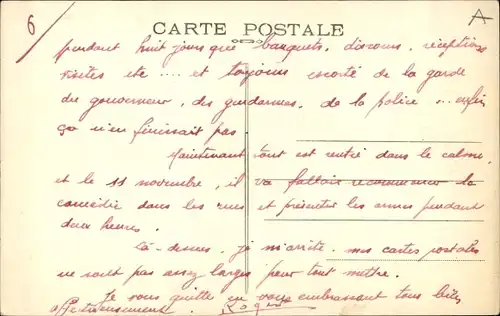 6
A
CARTE POSTALE
pendant huit jours que banquets, discours, réceptions
visites etc .... et toujours escorté de la garde
du gouverneur, des gendarmes, de la police ... enfin
ça n'en finissait pas.
Maintenant tout est rentré dans le calme
et le 11 novembre, il va falloir recommencer la
comédie dans les rues et présenter les armes pendant
deux heures.
Là-dessus, je m'arrête. mes cartes postales
ne sont pas assez larges pour tout mettre.
Je vous quitte en vous embrassant tous bien
affectueusement. Roger